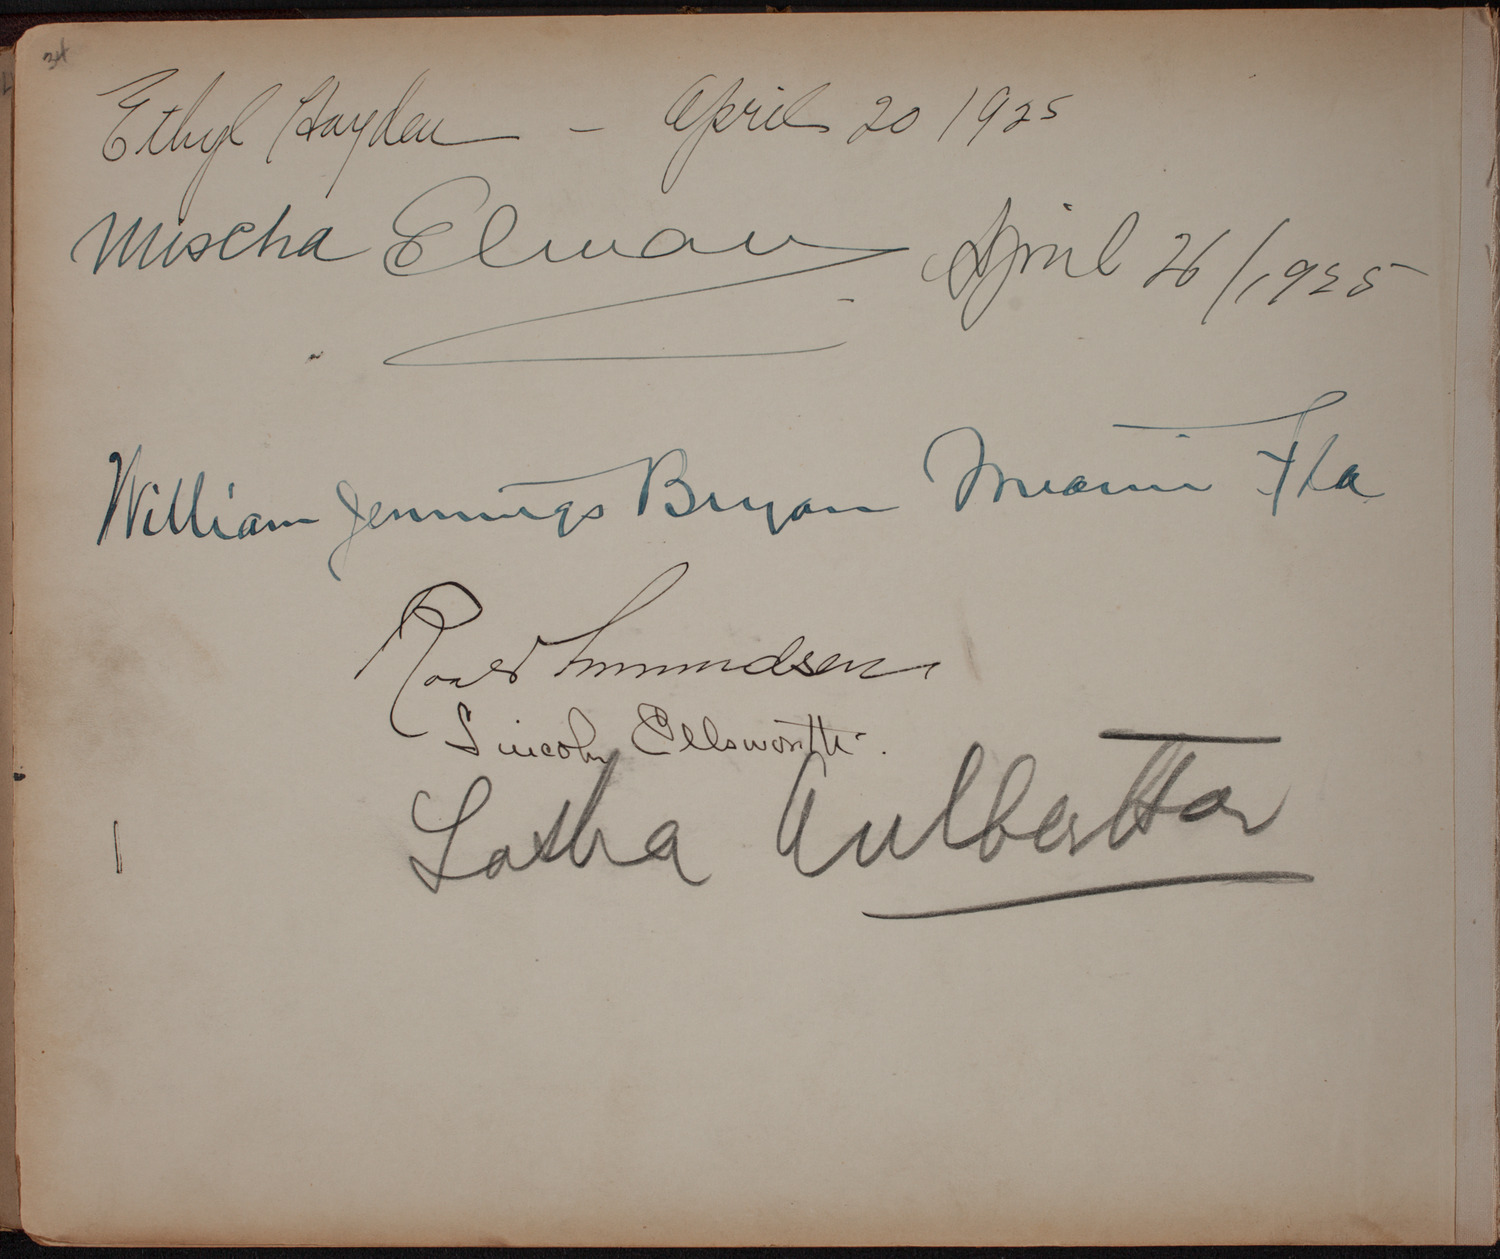 34
Ethyl Hayden — April 20 1925
Mischa Elman April 26/1925
William Jennings Bryan Miami Fla
Roald Amundsen
Lincoln Ellsworth.
Sasha Culbertson